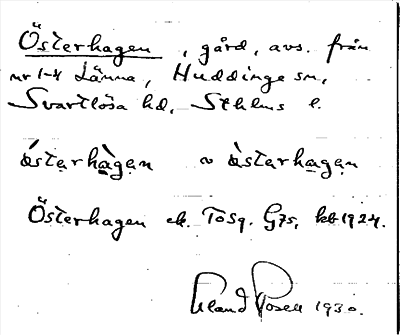 Österhagen, gård, avs. från
nr 1-4 Länna, Huddinge sn,
Svartlösa hd, Sthlms l.
ǻsterhàgen ~ àsterhagen
Österhagen ek. Tosq. G7s, kb 1924.
Rosell 1930.